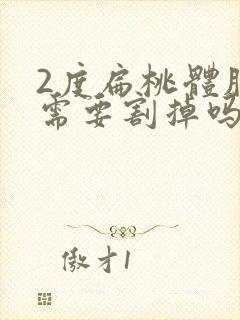 2度扁桃體肥
需要割掉吗
傲才1